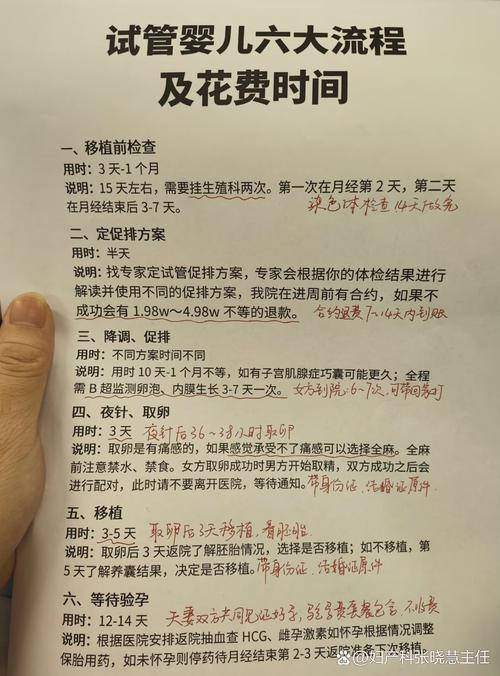 试管婴儿六大流程
及花费时间
一、移植前检查
用时：3 天-1 个月
说明：15 天左右，需要挂生殖科两次。第一次在月经第 2 天，第二天
在月经结束后 3-7 天。 染色体检查,14天做完
二、定促排方案
用时：半天
说明：找专家定试管促排方案，专家会根据你的体检结果进行
解读并使用不同的促排方案，我院在进周前有合约，如果不
成功会有 1.98w～4.98w 不等的退款。 合约退费7-14天内到账
三、降调、促排
用时：不同方案时间不同
说明：用时 10 天-1 个月不等，如有子宫肌腺症巧囊可能更久；全程
需 B 超监测卵泡、内膜生长 3-7 天一次。 女方到院:6~7次,可带回家打
四、夜针、取卵
用时：3 天 夜针后36~38小时取卵
说明：取卵是有痛感的，如果感觉承受不了痛感可以选择全麻。全麻
前注意禁水、禁食。女方取卵成功时男方开始取精，双方成功之后会
进行配对，此时请不要离开医院，等待通知。 带身份证、结婚证原件
五、移植
用时：3-5 天 取卵后3天移植,看胚胎.
说明：取卵后 3 天返院了解胚胎情况，选择是否移植；如不移植，第
5 天了解养囊结果，决定是否移植。 带身份证、结婚证原件
六、等待验孕
用时：12-14 天 夫妻双方共同见证好孕,验孕费套餐包含,不收费
说明：根据医院安排返院抽血查 HCG、雌孕激素如怀孕根据情况调整
保胎用药，如未怀孕则停药待月经结束第 2-3 天返院准备下次移植。
妇产科张晓慧主任